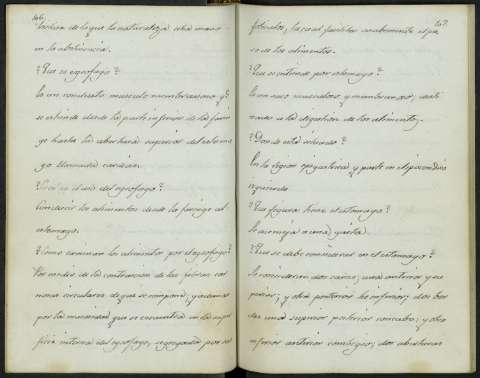 106.
de lo que la naturaleza
en la abstinencia.
¿Que es esofago?
Es un conducto musculo membranoso q.e
se estiende desde la parte inferior de la farin
ge hasta la abertura superior del estoma
go llamada cardias.
¿Cual es el uso del esofago?
Conducir los alimentos desde la faringe al
estomago.
¿Como caminan los alimentos por el esofago?
Por medio de la contraccion de las fibras car
nosas circulares de que se compone, y ademas
por la mucosidad que se encuentra en la super
ficie interna del esofago, segregada por
107.
foliculos, la cual facilita el pa
so de los alimentos.
¿Que se entiende por estomago?
Es un saco musculoso y membranoso, desti
nado a la digestion de los alimentos.
¿Donde está situado?
En la region epigastrica y parte en el hipocondrio
izquierdo.
¿Que figura tiene el estomago?
Se asemeja a una gaita.
¿Que se debe considerar en el estomago?
Se consideran dos caras; una anterior y su
perior; y otra posterior é inferior; dos bor
des uno superior posterior concabo; y otro
inferior anterior combexo; dos aberturas